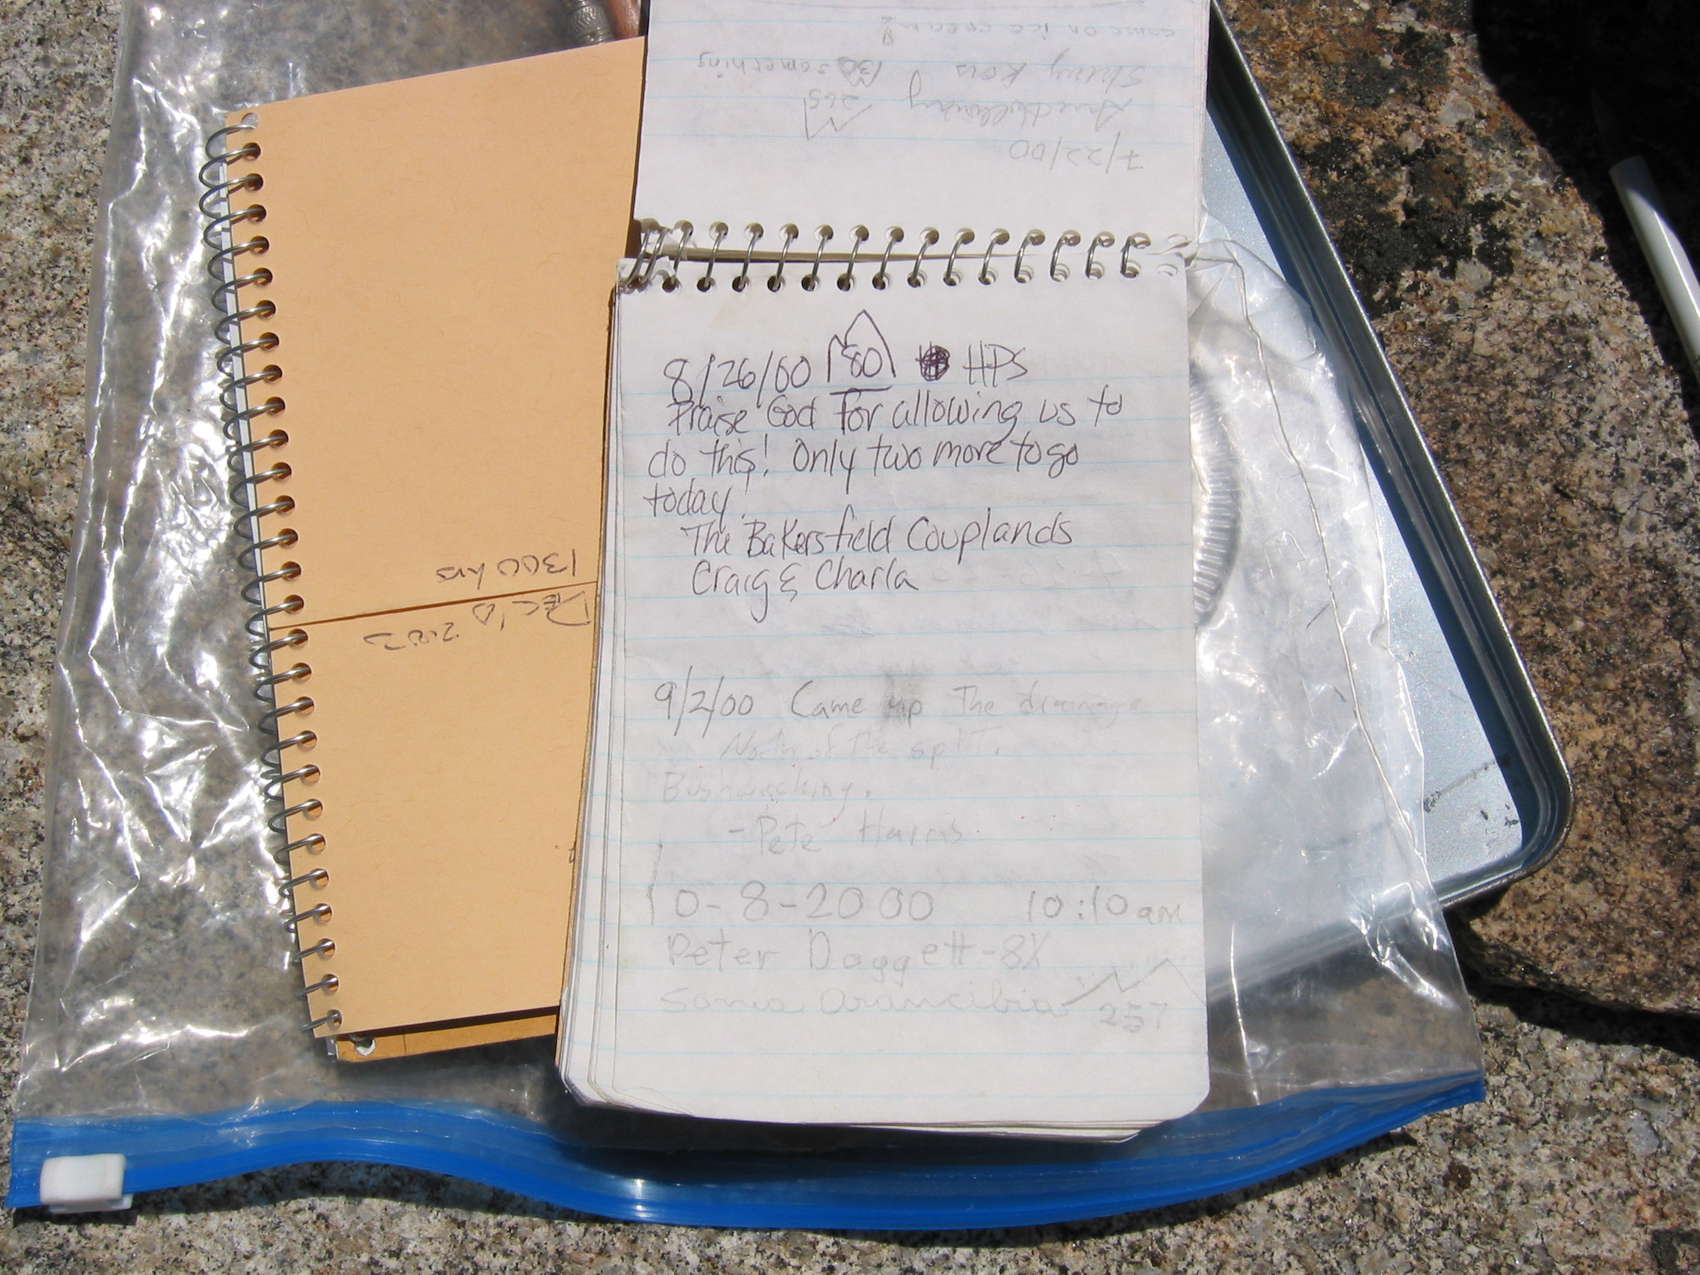 came on ice cream
Skinny Kovs 130 something
269
7/22/00
8/26/00 80 HPS
Praise God for allowing us to
do this! Only two more to go
today!
The Bakersfield Couplands
Craig & Charla
9/2/00 Came up The drainage
North of the split.
Bushwacking.
- Pete Harris
10-8-2000 10:10am
Peter Doggett-8X
Sonia Arancibia 257
1300 hrs
Dec 10 2003